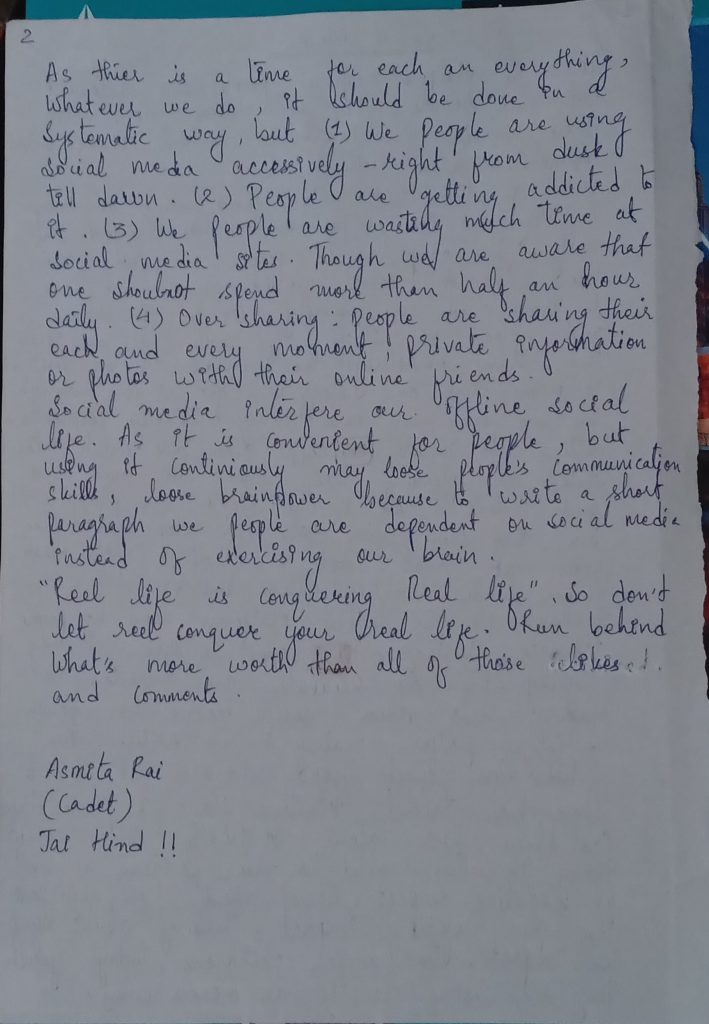 2
As thier is a time for each an everything,
whatever we do, it should be done in a
systematic way, but (1) We people are using
social media accessively - right from dusk
till dawn. (2) People are getting addicted to
it. (3) We people are wasting much time at
social media sites. Though we are aware that
one shouldnot spend more than half an hour
daily. (4) Over sharing: people are sharing their
each and every moment, private information
or photos with their online friends.
Social media interfere our offline social
life. As it is convenient for people, but
using it continiously may loose people's communication
skills, loose brainpower because to write a short
paragraph we people are dependent on social media
instead of exercising our brain.
"Reel life is conquering Real life". So don't
let reel conquer your real life. Run behind
what's more worth than all of those likes
and comments.
Asmita Rai
(Cadet)
Jai Hind !!